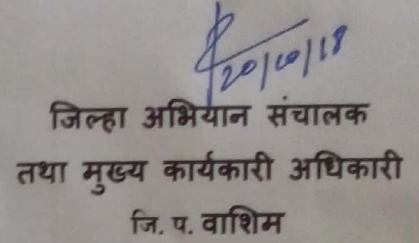 20/10/18
जिल्हा अभियान संचालक
तथा मुख्य कार्यकारी अधिकारी
जि. प. वाशिम